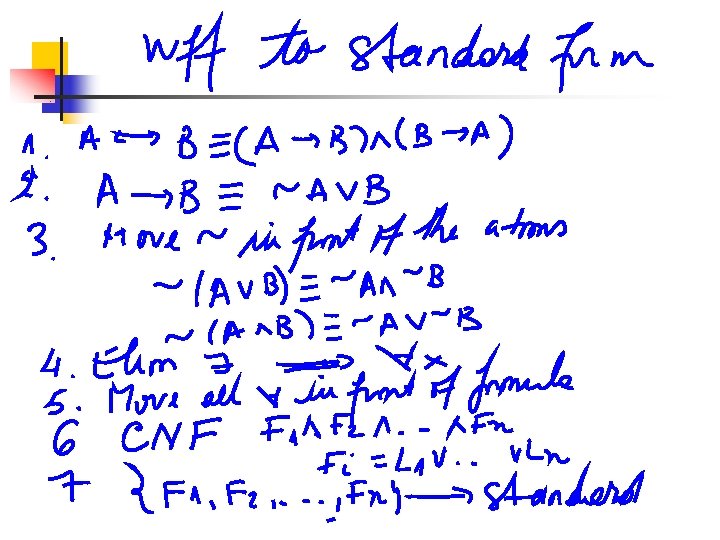 wff to standard form
1. A ↔ B ≡ (A → B) ∧ (B → A)
2. A → B ≡ ~A ∨ B
3. Move ~ in front of the atoms
~(A ∨ B) ≡ ~A ∧ ~B
~(A ∧ B) ≡ ~A ∨ ~B
4. Elim ∃ ⟹ ∀x
5. Move all ∀ in front of formula
6 CNF F1 ∧ F2 ∧ . . ∧ Fn
Fi = L1 ∨ . . ∨ Ln
7 {F1, F2, . . ., Fn} → standard